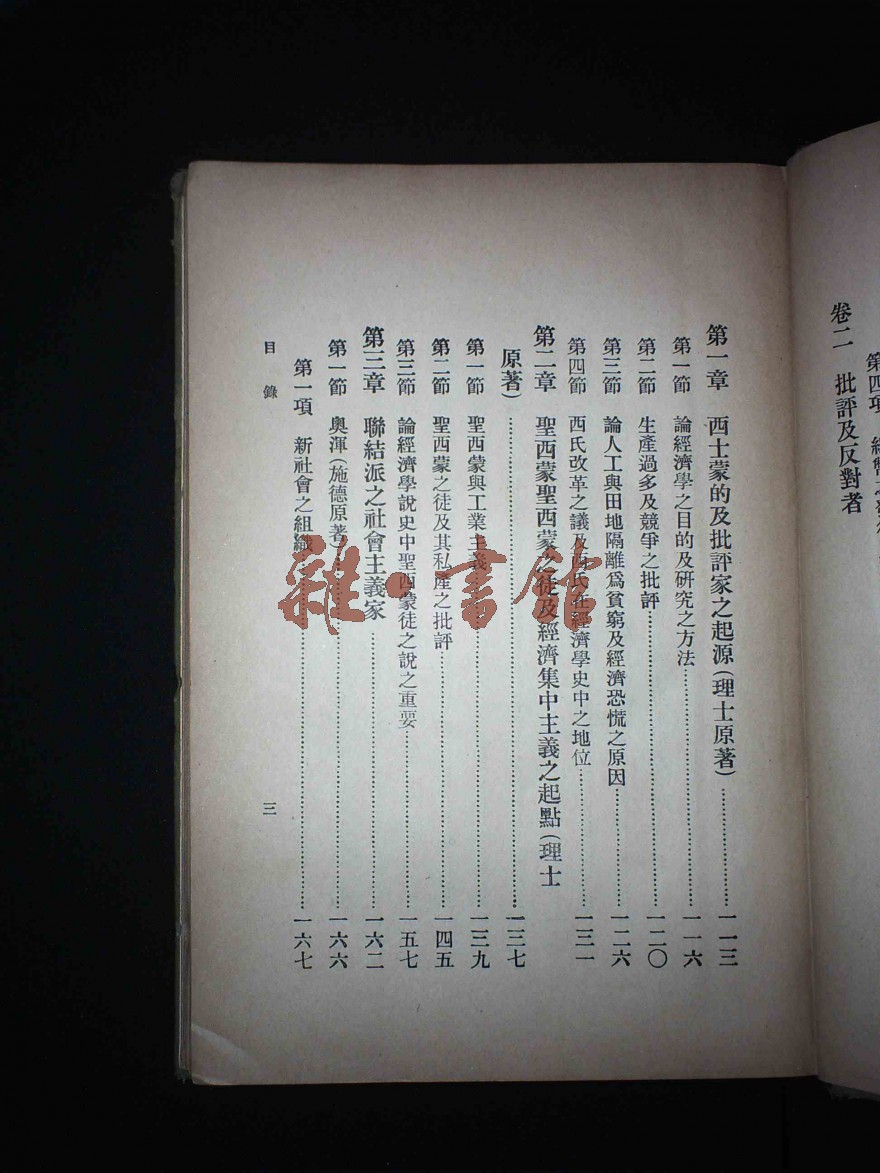 第四項
卷二　批評及反對者
第一章　西士蒙的及批評家之起源(理士原著)……一一三
第一節　論經濟學之目的及研究之方法……一一六
第二節　生產過多及競爭之批評……一二〇
第三節　論人工與田地隔離爲貧窮及經濟恐慌之原因……一二六
第四節　西氏改革之議及西氏在經濟學史中之地位……一三一
第二章　聖西蒙聖西蒙之徒及經濟集中主義之起點(理士
原著)……一三七
第一節　聖西蒙與工業主義……一三九
第二節　聖西蒙之徒及其私產之批評……一四五
第三節　論經濟學說史中聖西蒙徒之說之重要……一五七
第三章　聯結派之社會主義家……一六二
第一節　奧渾(施德原著)……一六六
第一項　新社會之組織……一六七
目錄
三
雜·書館